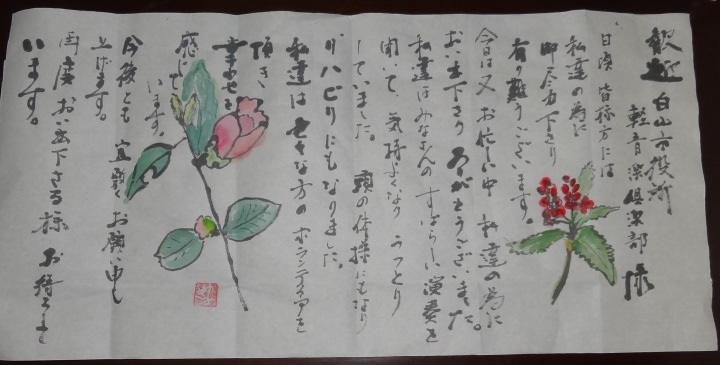 歓迎 白山市役所
軽音楽倶楽部 様
日頃 皆様方には
私達の為に
御尽力下さり
有り難うございます。
今日は又 お忙しい中 私達の為に
おいで下さり ありがとうございました。
私達はみなさんの すばらしい演奏を
聞いて、気持よくなり うっとり
していました。 頭の体操にもなり
リハビリにもなりました。
私達は 大きな方の ボランティアを
頂き 幸わせを
感じて
います。
今後とも 宜敷く お願い申し
上げます。
再度 おいで下さる様 お待ちして
います。